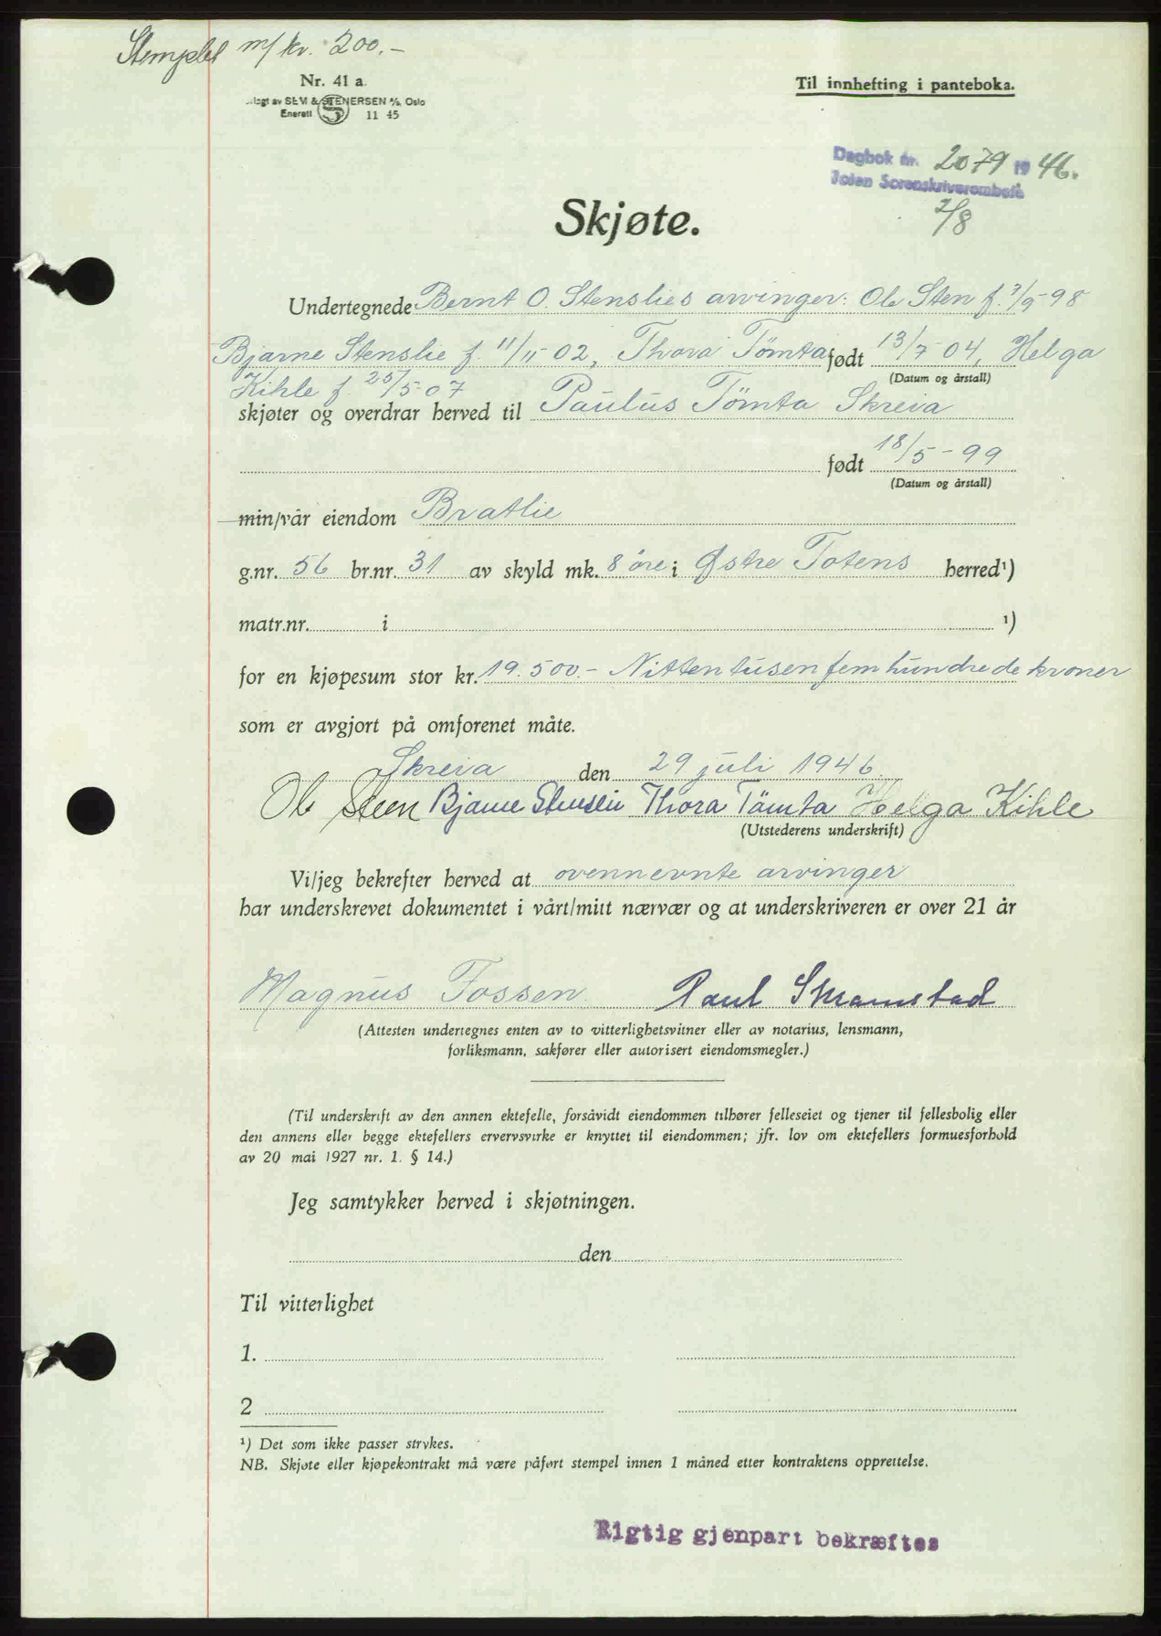 Stemplet m/ kr. 200.-
Nr. 41 a.
Til innhefting i panteboka.
SEM & STENERSEN A/S, Oslo
Enerett S 11 45
Dagbok nr. 2079 19 46.
Toten Sorenskriverembete
2/8
Skjøte.
Undertegnede Bernt O. Stenslies arvinger: Ole Sten f. 7/9-98
Bjarne Stenslie f. 11/11-02, Thora Tømta født 13/7 04, Helga
(Datum og årstall)
Kihle f. 25/5-07
skjøter og overdrar herved til Paulus Tømta Skreia
født 18/5-99
(Datum og årstall)
min/vår eiendom Bratlie
g.nr. 56 br.nr. 31 av skyld mk. 8 øre i Østre Totens herred¹)
matr.nr. i ¹)
for en kjøpesum stor kr. 19.500.- Nittentusenfemhundrede kroner
som er avgjort på omforenet måte.
Skreia den 29 juli 1946.
Ole Steen Bjarne Stenslie Thora Tømta Helga Kihle
(Utstederens underskrift)
Vi/jeg bekrefter herved at ovennevnte arvinger
har underskrevet dokumentet i vårt/mitt nærvær og at underskriveren er over 21 år
Magnus Fossen Paul Skramstad
(Attesten undertegnes enten av to vitterlighetsvitner eller av notarius, lensmann,
forliksmann, sakfører eller autorisert eiendomsmegler.)
(Til underskrift av den annen ektefelle, forsåvidt eiendommen tilhører felleseiet og tjener til fellesbolig eller
den annens eller begge ektefellers ervervsvirke er knyttet til eiendommen; jfr. lov om ektefellers formuesforhold
av 20 mai 1927 nr. 1. § 14.)
Jeg samtykker herved i skjøtningen.
den
Til vitterlighet
1.
2
¹) Det som ikke passer strykes.
NB. Skjøte eller kjøpekontrakt må være påført stempel innen 1 måned etter kontraktens opprettelse.
Rigtig gjenpart bekræftes